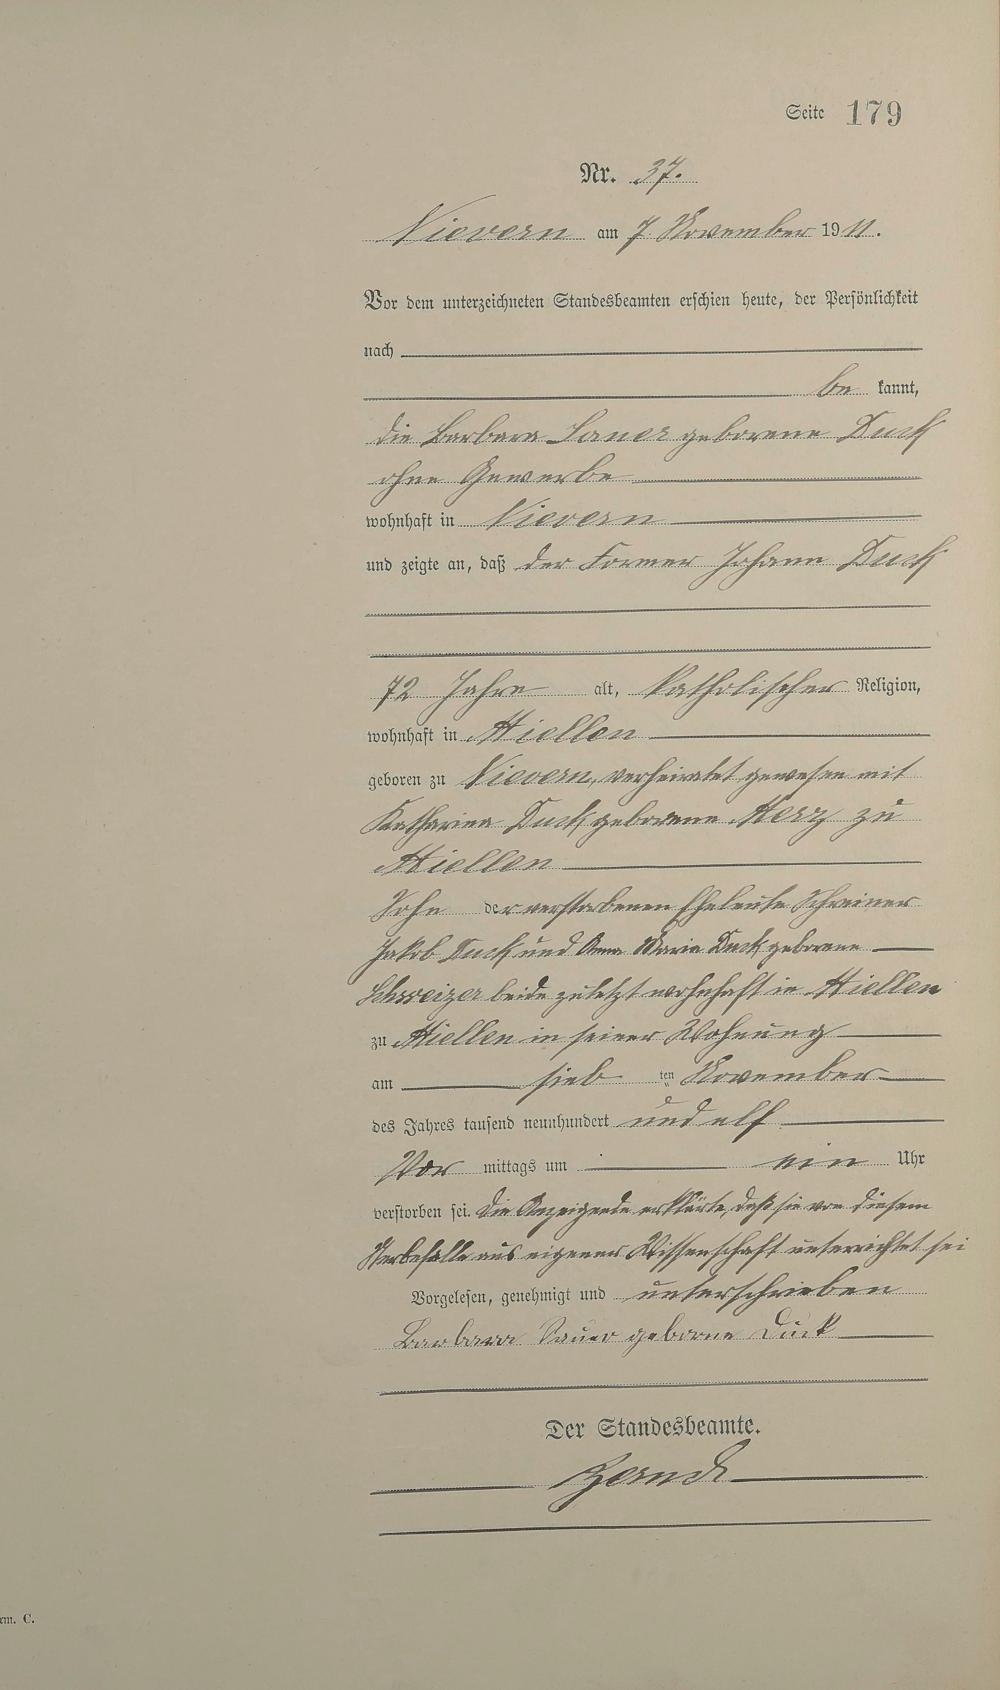 Seite 179
Nr. 37.
Nievern am 7. November 1911.
Vor dem unterzeichneten Standesbeamten erschien heute, der Persönlichkeit
nach
be kannt,
die Barbara Sauer geborene Duck
ohne Gewerbe
wohnhaft in Nievern
und zeigte an, daß der Former Johann Duck
72 Jahre alt, katholischer Religion,
wohnhaft in Miellen
geboren zu Nievern, verheiratet gewesen mit
Katharina Duck, geborene Merz zu
Miellen
Sohn der verstorbenen Eheleute Schreiner
Jakob Duck und Anna Maria Duck, geborene
Schweizer beide zuletzt wohnhaft in Miellen
zu Miellen in seiner Wohnung
am sieb ten November
des Jahres tausend neunhundert und elf
Vor mittags um ein Uhr
verstorben sei. Die Anzeigende erklärte, daß sie von diesem
Sterbefalle aus eigener Wissenschaft unterrichtet sei
Vorgelesen, genehmigt und unterschrieben
Barbara Sauer geborne Duck
Der Standesbeamte.
rm. C.